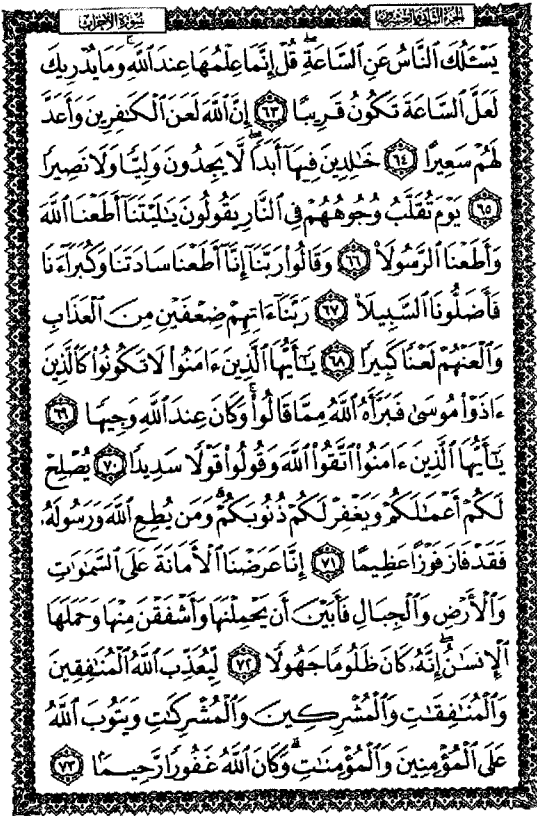 سُورَةُ الأَحْزَابِ
يَسْـَٔلُكَ ٱلنَّاسُ عَنِ ٱلسَّاعَةِۖ قُلْ إِنَّمَا عِلْمُهَا عِندَ ٱللَّهِۚ وَمَا يُدْرِيكَ
لَعَلَّ ٱلسَّاعَةَ تَكُونُ قَرِيبًا ٦٣ إِنَّ ٱللَّهَ لَعَنَ ٱلْكَٰفِرِينَ وَأَعَدَّ
لَهُمْ سَعِيرًا ٦٤ خَٰلِدِينَ فِيهَآ أَبَدًاۖ لَّا يَجِدُونَ وَلِيًّا وَلَا نَصِيرًا
٦٥ يَوْمَ تُقَلَّبُ وُجُوهُهُمْ فِى ٱلنَّارِ يَقُولُونَ يَٰلَيْتَنَآ أَطَعْنَا ٱللَّهَ
وَأَطَعْنَا ٱلرَّسُولَا۠ ٦٦ وَقَالُوا۟ رَبَّنَآ إِنَّآ أَطَعْنَا سَادَتَنَا وَكُبَرَآءَنَا
فَأَضَلُّونَا ٱلسَّبِيلَا۠ ٦٧ رَبَّنَآ ءَاتِهِمْ ضِعْفَيْنِ مِنَ ٱلْعَذَابِ
وَٱلْعَنْهُمْ لَعْنًا كَبِيرًا ٦٨ يَٰٓأَيُّهَا ٱلَّذِينَ ءَامَنُوا۟ لَا تَكُونُوا۟ كَٱلَّذِينَ
ءَاذَوْا۟ مُوسَىٰ فَبَرَّأَهُ ٱللَّهُ مِمَّا قَالُوا۟ۚ وَكَانَ عِندَ ٱللَّهِ وَجِيهًا ٦٩
يَٰٓأَيُّهَا ٱلَّذِينَ ءَامَنُوا۟ ٱتَّقُوا۟ ٱللَّهَ وَقُولُوا۟ قَوْلًا سَدِيدًا ٧٠ يُصْلِحْ
لَكُمْ أَعْمَٰلَكُمْ وَيَغْفِرْ لَكُمْ ذُنُوبَكُمْۗ وَمَن يُطِعِ ٱللَّهَ وَرَسُولَهُۥ
فَقَدْ فَازَ فَوْزًا عَظِيمًا ٧١ إِنَّا عَرَضْنَا ٱلْأَمَانَةَ عَلَى ٱلسَّمَٰوَٰتِ
وَٱلْأَرْضِ وَٱلْجِبَالِ فَأَبَيْنَ أَن يَحْمِلْنَهَا وَأَشْفَقْنَ مِنْهَا وَحَمَلَهَا
ٱلْإِنسَٰنُۖ إِنَّهُۥ كَانَ ظَلُومًا جَهُولًا ٧٢ لِّيُعَذِّبَ ٱللَّهُ ٱلْمُنَٰفِقِينَ
وَٱلْمُنَٰفِقَٰتِ وَٱلْمُشْرِكِينَ وَٱلْمُشْرِكَٰتِ وَيَتُوبَ ٱللَّهُ
عَلَى ٱلْمُؤْمِنِينَ وَٱلْمُؤْمِنَٰتِۗ وَكَانَ ٱللَّهُ غَفُورًا رَّحِيمًا ٧٣